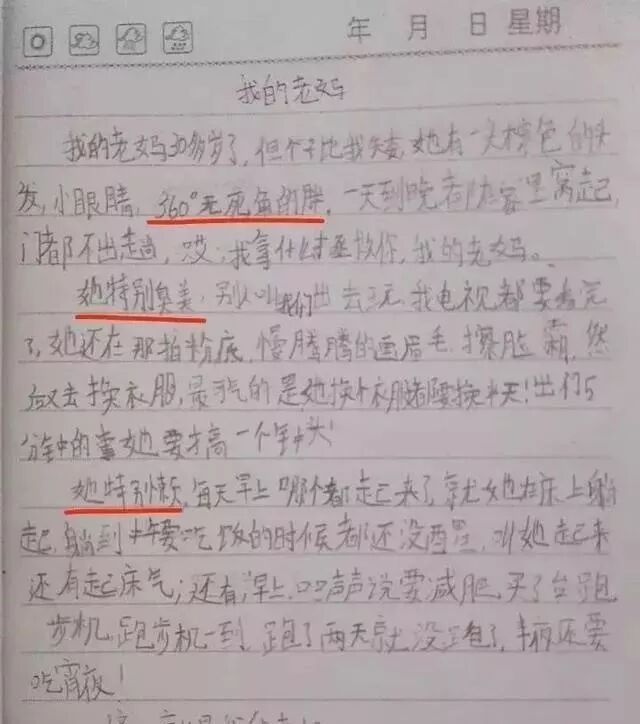 年 月 日 星期
我的老妈
我的老妈30多岁了，但个子比我矮，她有一头棕色的头
发，小眼睛，360°无死角的胖，一天到晚都在家里窝起，
门都不出趟，哎，我拿什么拯救你，我的老妈。
她特别臭美，别人叫我们出去玩，我电视都要看完
了，她还在那拍粉底，慢腾腾的画眉毛，擦脸霜，然
后又去换衣服，最气的是她换个衣服都要换半天！出门5
分钟的事她要搞一个钟头！
她特别懒，每天早上哪个都起来了，就她在床上躺
起，躺到中午要吃饭的时候都还没醒，叫她起来
还有起床气；还有，早上口口声声说要减肥，买了台跑
步机，跑步机一到，跑了两天就没跑了，半夜还要
吃宵夜！